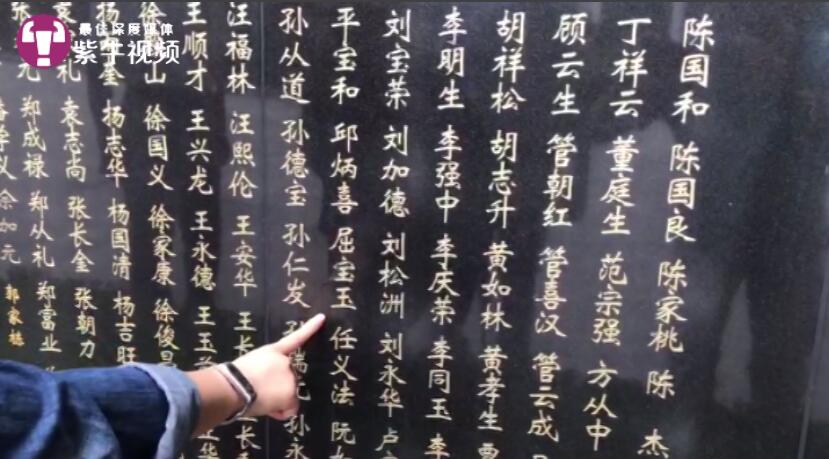 最佳深度媒体
紫牛视频
陈国和 陈国良 陈家桃 陈 杰
丁祥云 董庭生 范宗强 方从中
顾云生 管朝红 管喜汉 管云成
胡祥松 胡志升 黄如林 黄孝生
李明生 李强中 李庆荣 李同玉 李
刘宝荣 刘加德 刘松洲 刘永华 卢
平宝和 邱炳喜 屈宝玉 任义法 阮
孙从道 孙德宝 孙仁发 孙 孙永
汪福林 汪熙伦 王安华 王长
王顺才 王兴龙 王永德 王玉
徐 山 徐国义 徐家康 徐俊
杨 奎 杨志华 杨国清 杨吉旺
袁 礼 袁志尚 张长金 张朝力
张 元 郑成禄 郑从礼 郑富业
余加元 郭家栋